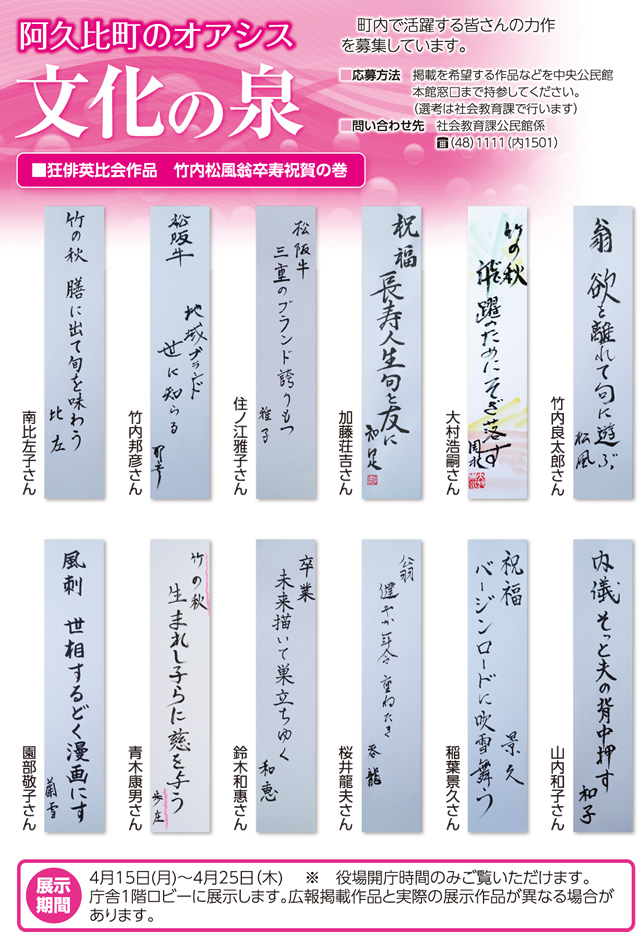 阿久比町のオアシス
文化の泉
町内で活躍する皆さんの力作
を募集しています。
■応募方法 掲載を希望する作品などを中央公民館
本館窓口まで持参してください。
(選考は社会教育課で行います)
■問い合わせ先 社会教育課公民館係
☎(48)1111(内1501)
■狂俳英比会作品 竹内松風翁卒寿祝賀の巻
翁 欲を離れて句に遊ぶ 松風
竹内良太郎さん
竹の秋 飛躍のためにそぎ落す
大村浩嗣さん
祝福 長寿人生句を友に
加藤荘吉さん
松阪牛 三重のブランド誇りもつ 雅子
住ノ江雅子さん
松阪牛 地域ブランド世に知らる
竹内邦彦さん
竹の秋 膳に出て旬を味わう 比左
南比左子さん
内儀 そっと夫の背中押す 和子
山内和子さん
祝福 バージンロードに吹雪舞う 景久
稲葉景久さん
翁 健やか年令重ねたき 春龍
桜井龍夫さん
卒業 未来描いて巣立ちゆく 和恵
鈴木和惠さん
竹の秋 生まれし子らに慈を与う 歩庄
青木康男さん
風刺 世相するどく漫画にす 蘭雪
園部敬子さん
展示
期間
4月15日(月)~4月25日(木) ※ 役場開庁時間のみご覧いただけます。
庁舎1階ロビーに展示します。広報掲載作品と実際の展示作品が異なる場合が
あります。